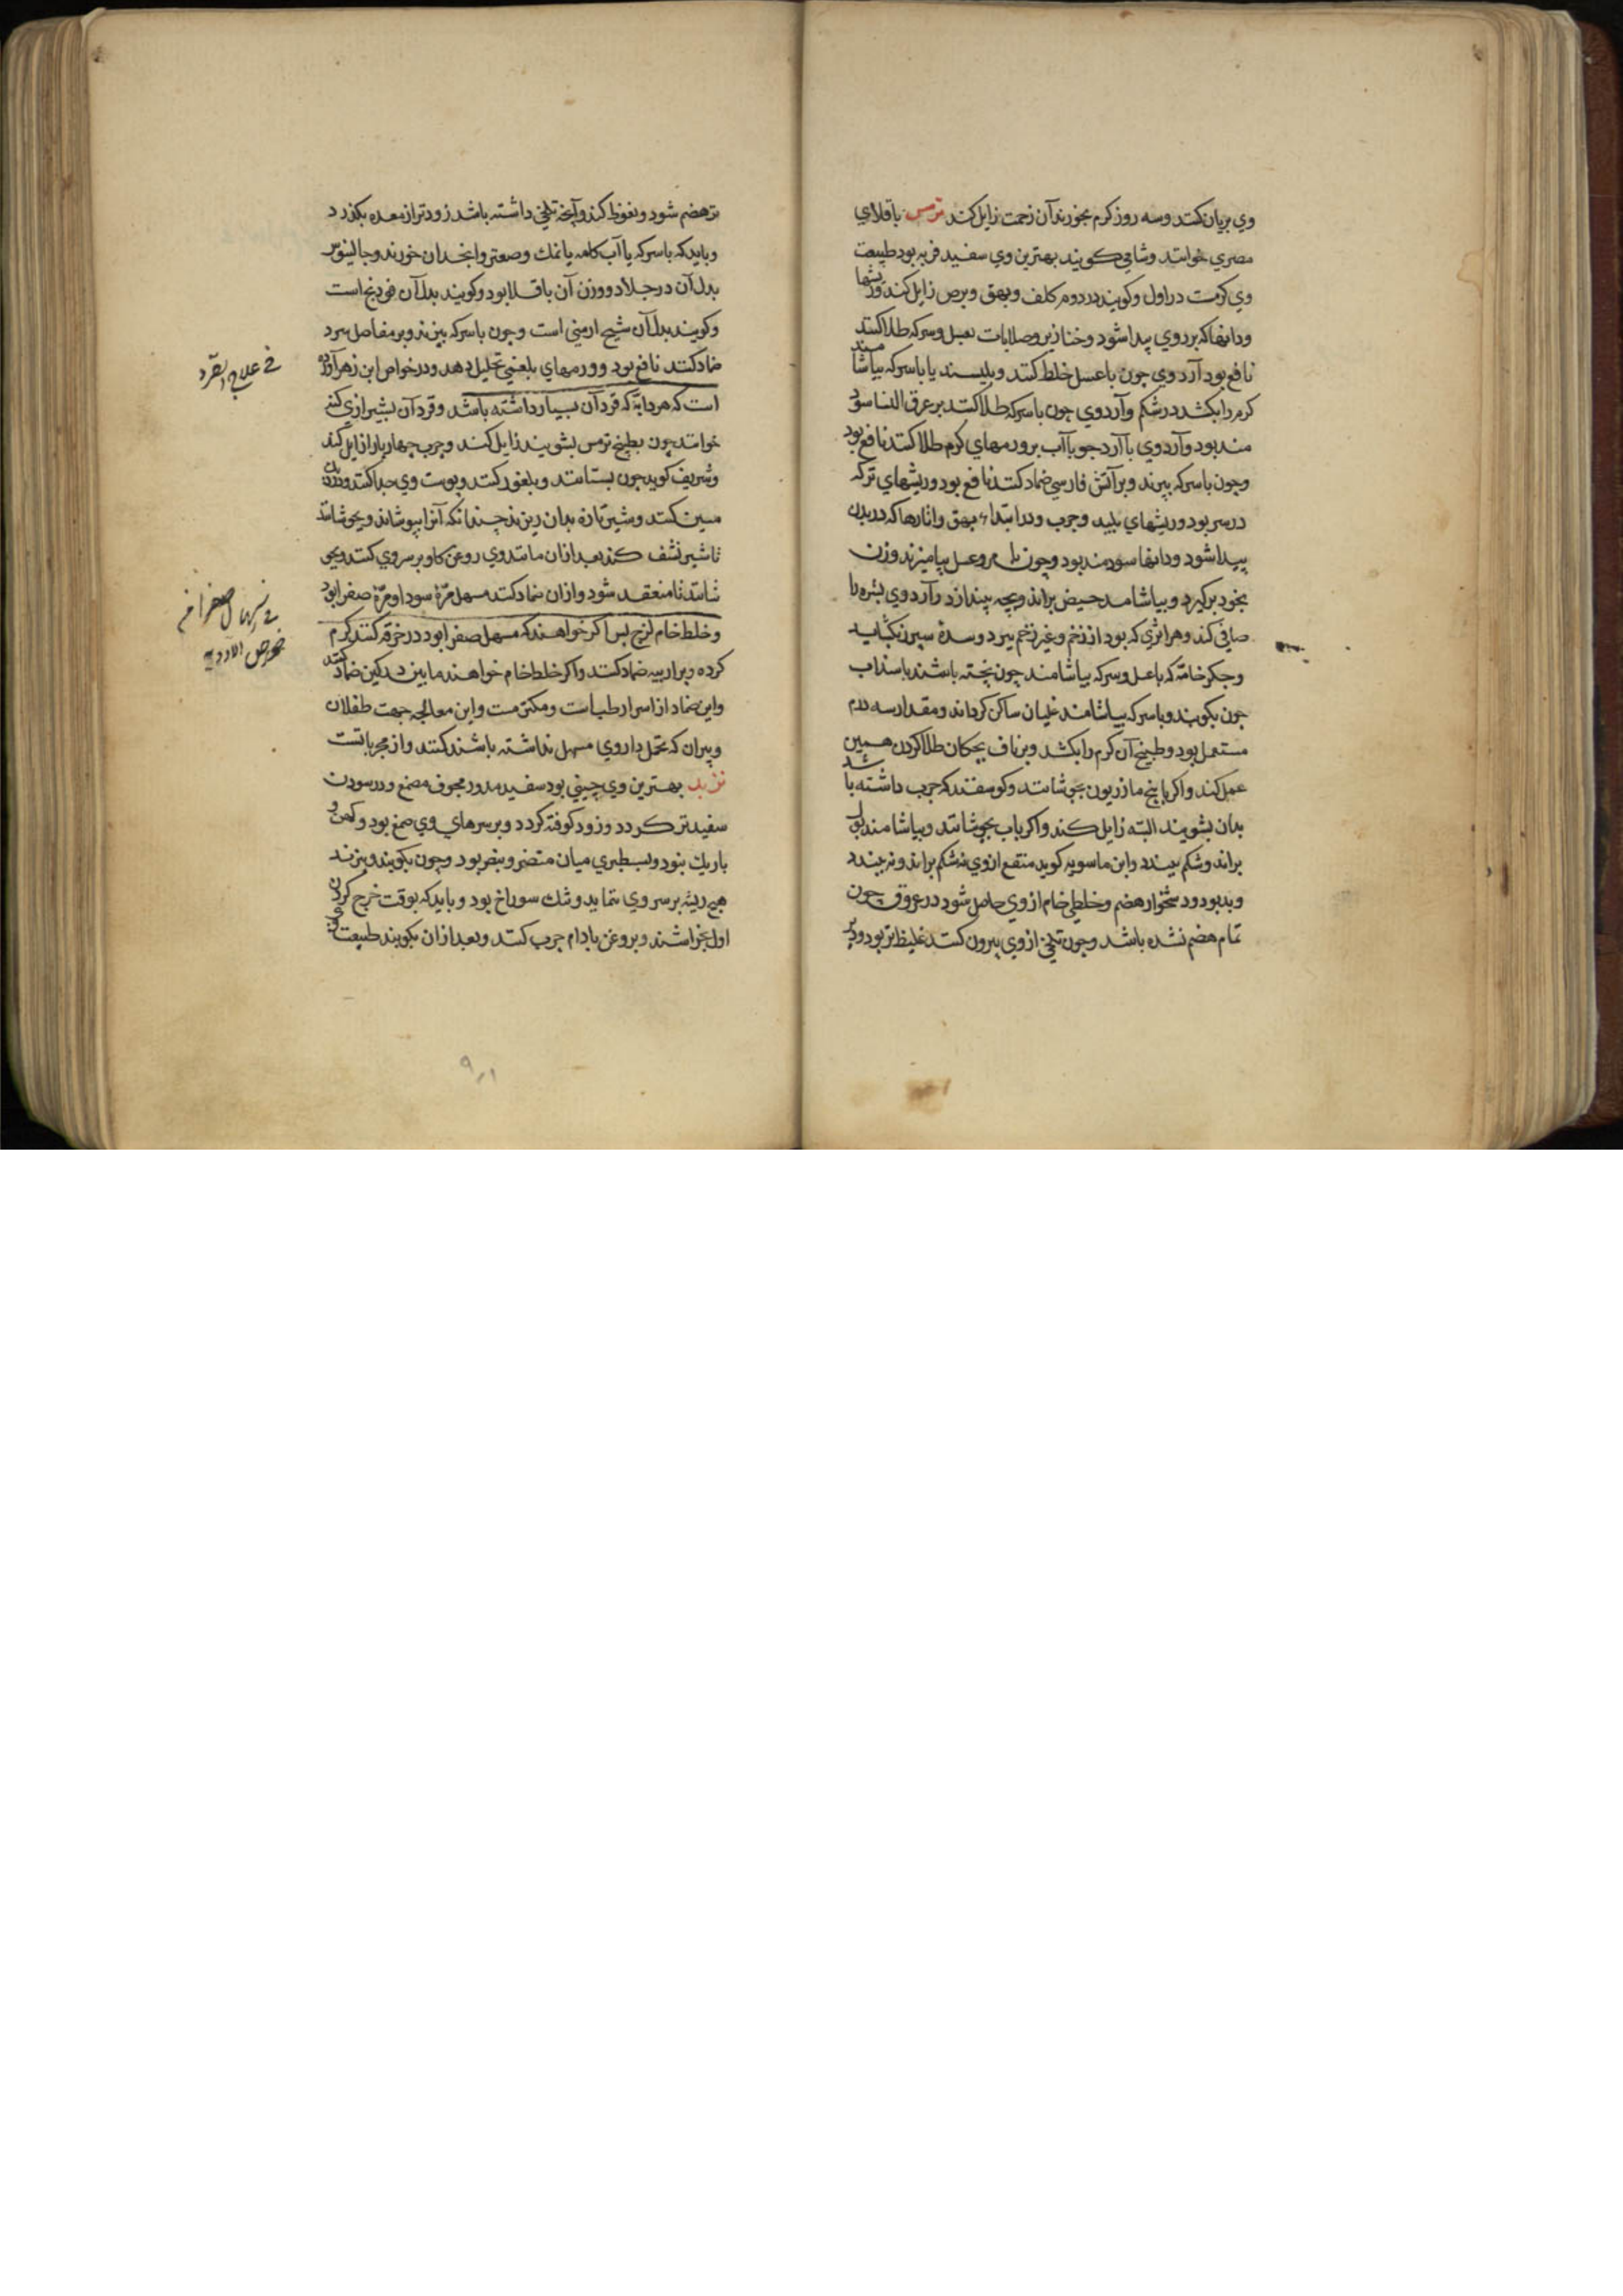 وي بريان كنند وسه روز كرم بخورند آن زحمت زايل كند ترمس باقلاي
مصري خوانند وشامي كويند بهترين وي سفيد فربه بود طبيعت
وي كرمست در اول وكويند در دوم كلف وبهق وبرص زايل كند وريشها
ودانها كه بر روي پيدا شود وخنازير وصلابات بعسل وسركه طلا كنند
نافع بود آرد وي چون با عسل خلط كنند وبليسند يا با سركه بياشامند
كرم را بكشد در شكم وآرد وي چون با سركه طلا كنند بر عرق النسا سود
مند بود وآرد وي با آرد جو با آب بر ورمهاي كرم طلا كنند نافع بود
وچون با سركه بپزند وبر آتش فارسي ضماد كنند نافع بود وريشهاي تر كه
در سر بود وريشهاي پليد وجرب ودر ابتداء بهق واثارها كه در بدن
پيدا شود ودانها سودمند بود وچون با مر وعسل بياميزند وزن
بخود بركيرد وبياشامد حيض براند وبچه بيندازد وآرد وي بشره را
صافي كند وهر اثري كه بود از زخم وغير زخم ببرد وسده سپرز بكشايد
وجكر خاصّه كه با عسل وسركه بياشامند چون پخته باشند با سذاب
چون بكوبند وبا سركه بياشامند غليان ساكن كرداند ومقدار سه درم
مستعمل بود وطبيخ آن كرم را بكشد وبر ناف بچكان طلا كردن همين
عمل كند واكر با بيخ مازريون بجوشانند وكوسفند كه جرب داشته باشد
بدان بشويند البته زايل كند واكر باب بجوشانند وبياشامند بول
براند وشكم ببندد وابن ماسويه كويد منتفع از وي نه شكم براند ونه ببندد
وبد بود ودشخوار هضم وخلطي خام از وي حاصل شود در عروق چون
تمام هضم نشده باشد وچون تلخي از وي بيرون كنند غليظ تر بود ودير
تر هضم شود ونفوظ كند وآنچه تلخي داشته باشد زودتر از معده بكذرد
وبايد كه با سركه يا آب كامه يا نمك وصعتر وانجدان خورند وجالينوس
بدل آن در جلا دو وزن آن باقلا بود وكويند بدل آن فودنج است
وكويند بدل آن شيح ارمني است وچون با سركه بپزند وبر مفاصل سرد
ضماد كنند نافع بود وورمهاي بلغمي تحليل دهد ودر خواص ابن زهر آورده
است كه هر دابه كه قرد آن بسيار داشته باشد وقرد آن بشيرازي كنه
خوانند چون بطبيخ ترمس بشويند زايل كند وجرب چهار پا را زايل كند
وشريف كويد چون بستانند وبلغور كنند وپوست وي جدا كنند ودر
مسين كنند وشير تازه بدان ريزند چندانكه آنرا بپوشاند وبجوشانند
تا شير نشف كند بعد از ان مانند وي روغن كاو بر سر وي كنند وبجو
شانند تا منعقد شود واز ان ضماد كنند مسهل مرّه سودا ومرّه صفرا بود
وخلط خام لزج پس اكر خواهند كه مسهل صفرا بود در خرقه كنند كرم
كرده وبر اربيه ضماد كنند واكر خلط خام خواهند ما بين ضماد كنند
واين ضماد از اسرار طب است ومكتومست واين معالجه جهت طفلان
وپيران كه تحمل داروي مسهل نداشته باشند كنند واز مجرباتست
تربد بهترين وي چيني بود سفيد مدور مجوف مصمغ ودر سودن
سفيدتر كردد وزود كوفته كردد وبر سرهاي وي صمغ بود وكهن و
باريك نبود وبسطبري ميان خنصر وبنصر بود وچون بكوبند وبپزند
هيچ ريشه بر سر وي ننمايد وتنك سوراخ بود وبايد كه بوقت خرج كردن
اول بخراشند وبروغن بادام چرب كنند وبعد از ان بكوبند طبيعت وي
في علاج القرد
في اسهال صفرا